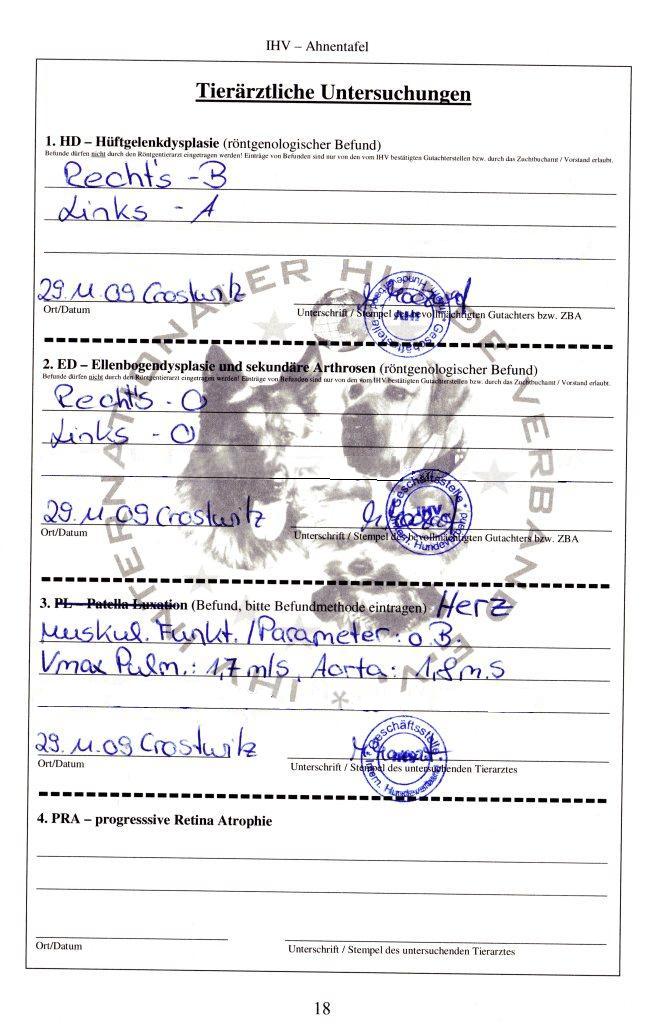 IHV – Ahnentafel
Tierärztliche Untersuchungen
1. HD – Hüftgelenkdysplasie (röntgenologischer Befund)
Befunde dürfen nicht durch den Röntgentierarzt eingetragen werden! Einträge von Befunden sind nur von den vom IHV bestätigten Gutachterstellen bzw. durch das Zuchtbuchamt / Vorstand erlaubt.
Rechts - B
Links - A
29.11.09 Crostwitz
Ort/Datum
Unterschrift / Stempel des bevollmächtigten Gutachters bzw. ZBA
2. ED – Ellenbogendysplasie und sekundäre Arthrosen (röntgenologischer Befund)
Befunde dürfen nicht durch den Röntgentierarzt eingetragen werden! Einträge von Befunden sind nur von den vom IHV bestätigten Gutachterstellen bzw. durch das Zuchtbuchamt / Vorstand erlaubt.
Rechts - 0
Links - 0
29.11.09 Crostwitz
Geschäftsstelle
IHV
Intern. Hundeverband
Ort/Datum
Unterschrift / Stempel des bevollmächtigten Gutachters bzw. ZBA
3. PL – Patella Luxation (Befund, bitte Befundmethode eintragen) Herz
Muskul. Funkt./Parameter: o.B.
Vmax Pulm.: 1,7 m/s, Aorta: 1,8 m.s
29.11.09 Crostwitz
Geschäftsstelle
Intern. Hundeverband
Ort/Datum
Unterschrift / Stempel des untersuchenden Tierarztes
4. PRA – progresssive Retina Atrophie
Ort/Datum
Unterschrift / Stempel des untersuchenden Tierarztes
INTERNATIONALER HUNDEVERBAND E.V. * IHV *
18